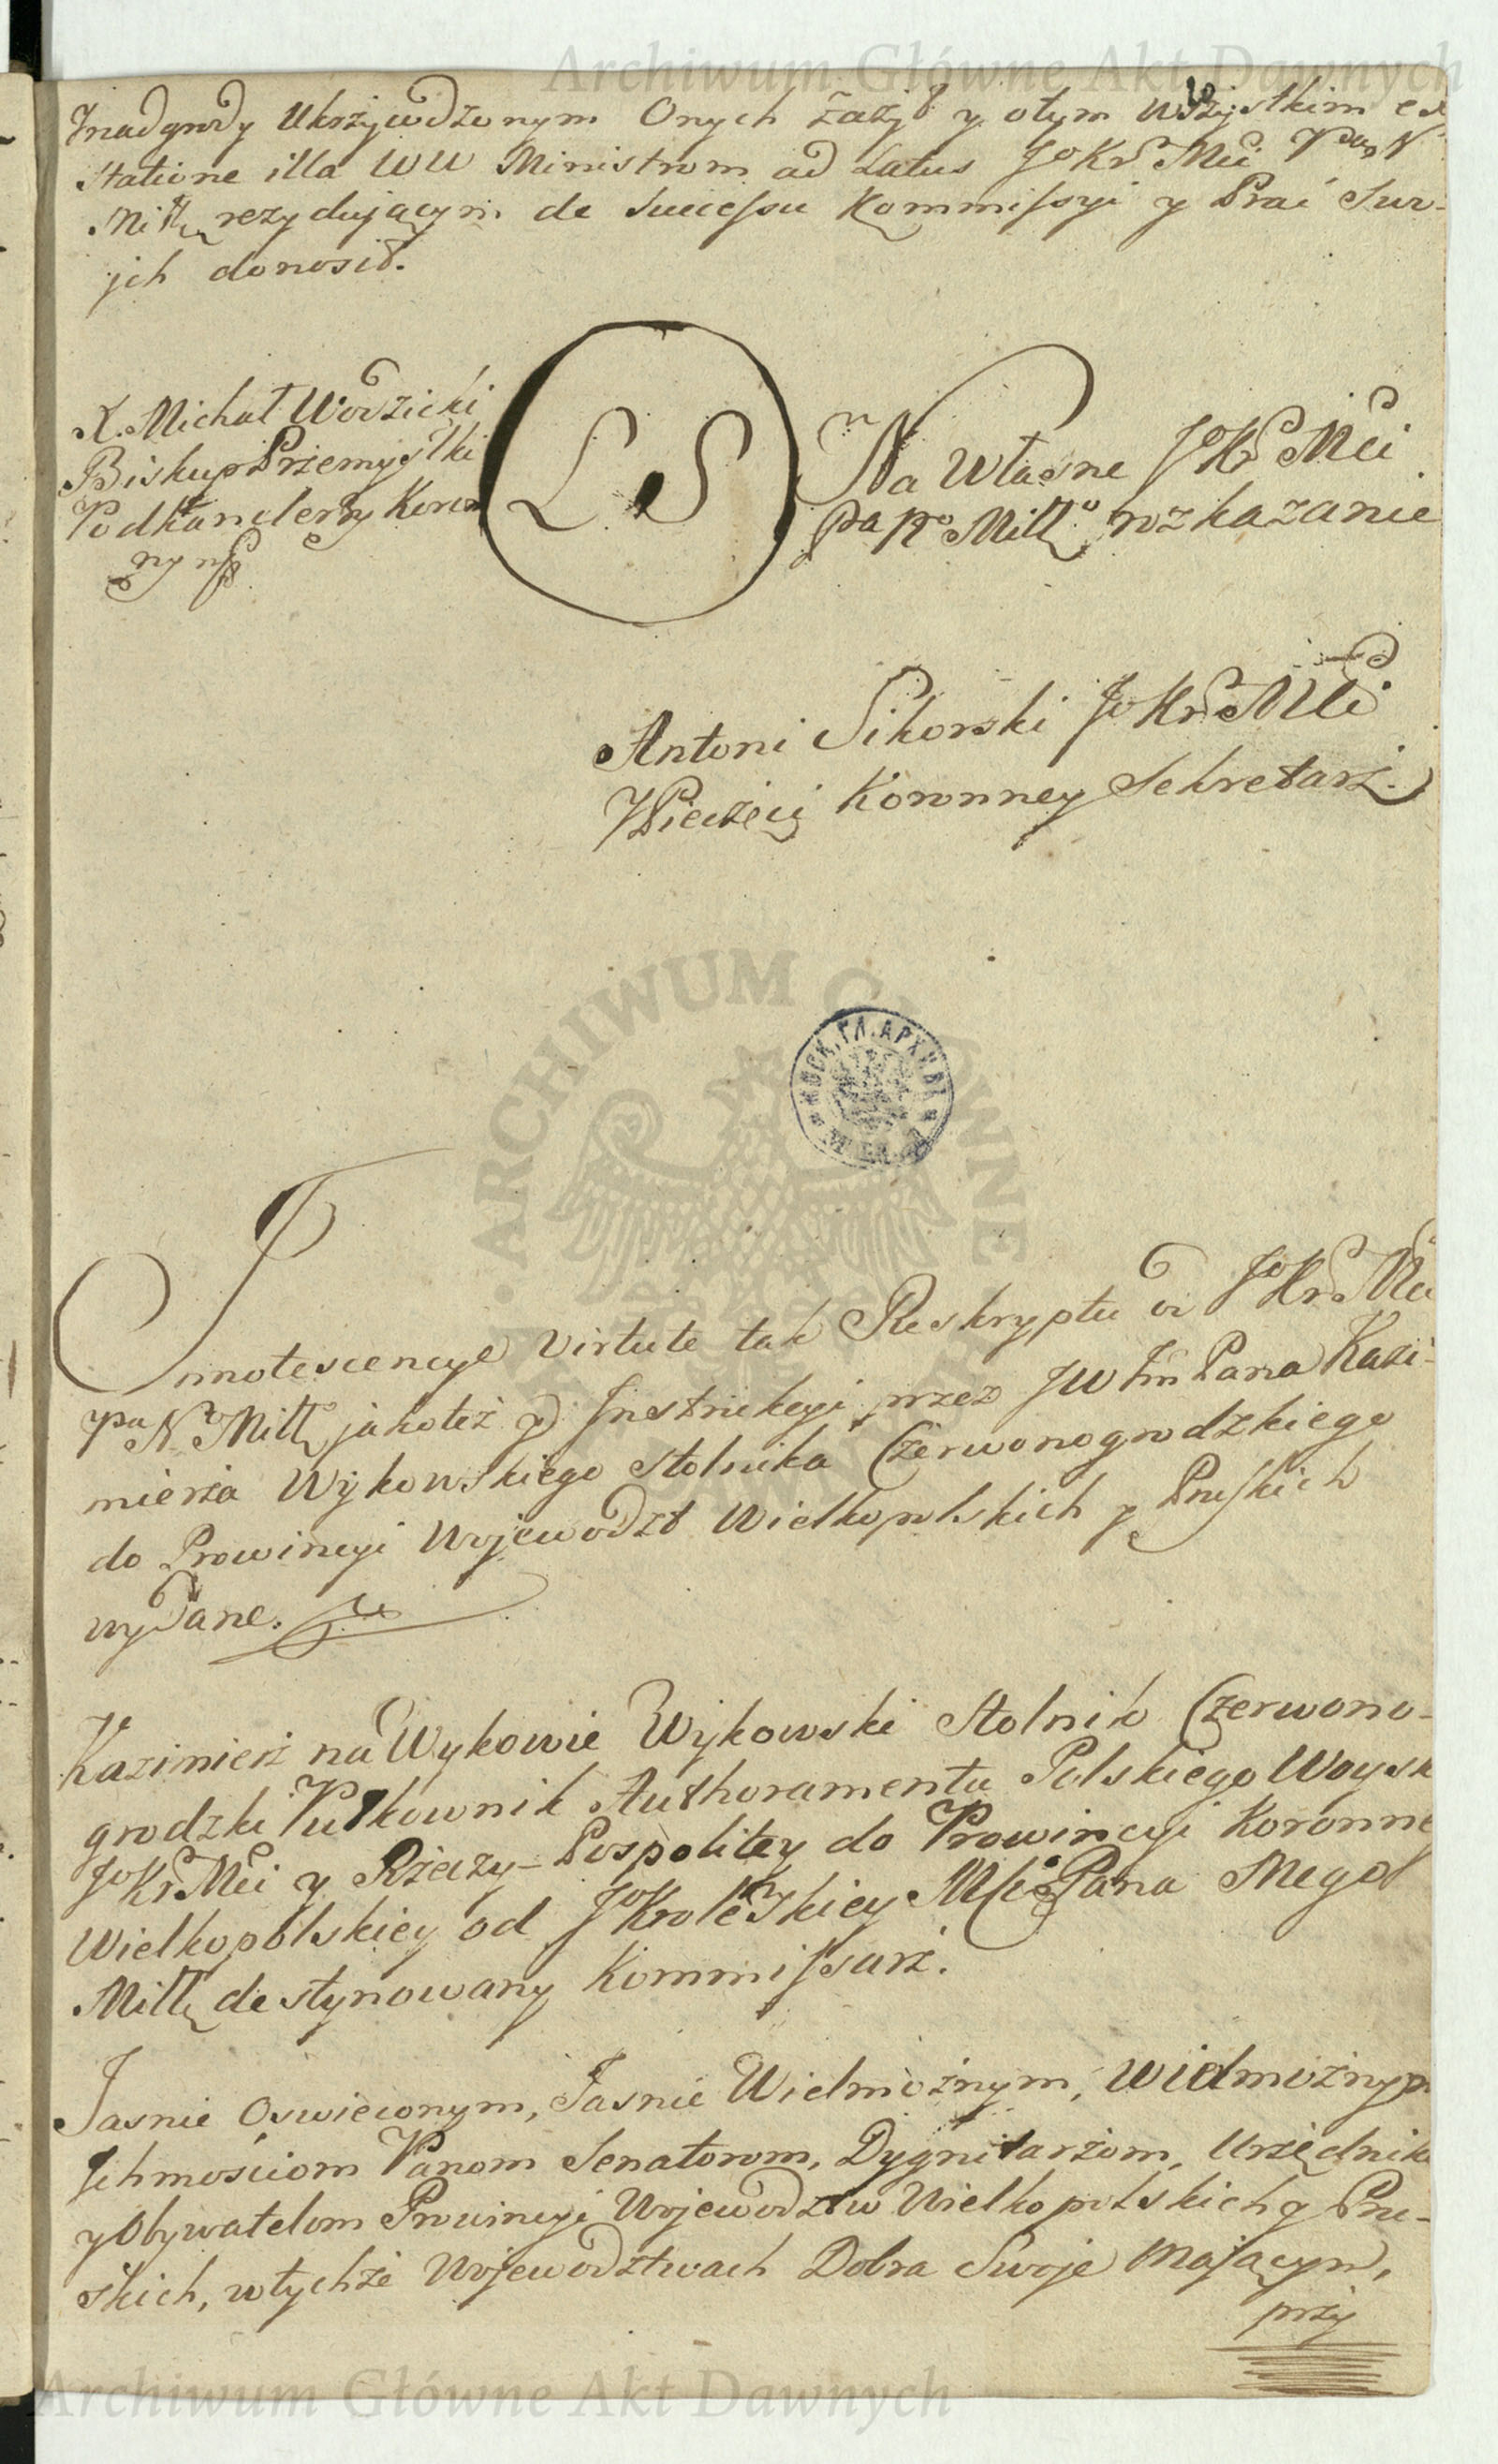 Archiwum Główne Akt Dawnych
Jnadgrody Ukrzywdzonym Onych zażył y otym wszystkim ex
statione illa WW Ministrom ad Latus JoKr Mci Pa N
Mittu rezydującym de Successu Kommissyi y Prac Swo-
jch donosił.
X. Michał Wodzicki
Biskup Przemyslki
Podkanclerzy Koron
ny
LS
Na własne JoKr Mci
Pa No Mittgo rozkazanie
Antoni Sikorski JoKr Mci
Pieczęci Koronney Sekretarz.
ARCHIWUM GŁÓWNE
МОСК. ГЛ. АРХИВЪ
Jnnotescencye virtute tak Reskryptu od JoKr Mci
Pa No Mittgo jakoteż y Jnstrukcyi przez JW Jm Pana Kazi-
mierza Wykowskiego Stolnika Czerwonogrodzkiego
do Prowincyi Wojewodzt Wielkopolskich y Pruskich
wydane.
Kazimierz na Wykowie Wykowski Stolnik Czerwono-
grodzki Pułkownik Authoramentu Polskiego Woysk
JoKr Mci y Rzeczy-Pospolitey do Prowincyi Koronne
Wielkopolskiey od JoKroleskiey Mci Pana Mego
Mittgo destynowany Kommissarz.
Jasnie Oswieconym, Jasnie Wielmożnym, Wielmożnym
Jchmościom Panom Senatorom, Dygnitarzom, Urzędnika
y Obywatelom Prowincyi Wojewodztw Wielkopolskich y Pru-
skich, wtychże Wojewodztwach Dobra Swoje Mającym,
przy
Archiwum Główne Akt Dawnych